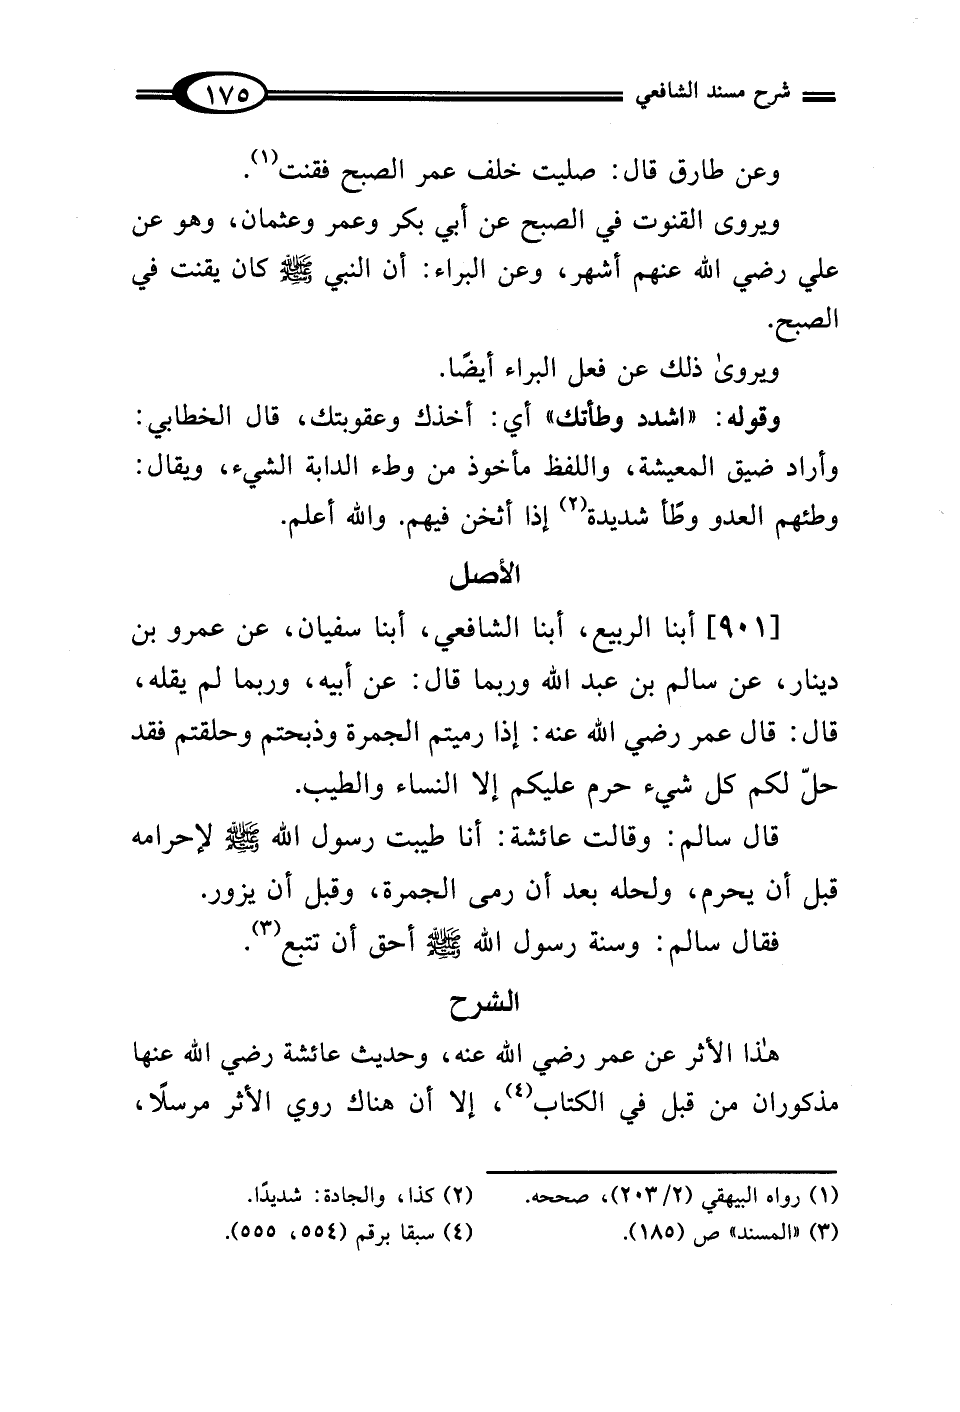 شرح مسند الشافعي ١٧٥
وعن طارق قال: صليت خلف عمر الصبح فقنت(١).
ويروى القنوت في الصبح عن أبي بكر وعمر وعثمان، وهو عن
علي رضي الله عنهم أشهر، وعن البراء: أن النبي ﷺ كان يقنت في
الصبح.
ويروىٰ ذلك عن فعل البراء أيضًا.
وقوله: «اشدد وطأتك» أي: أخذك وعقوبتك، قال الخطابي:
وأراد ضيق المعيشة، واللفظ مأخوذ من وطء الدابة الشيء، ويقال:
وطئهم العدو وطًأ شديدة(٢) إذا أثخن فيهم. والله أعلم.
الأصل
[٩٠١] أبنا الربيع، أبنا الشافعي، أبنا سفيان، عن عمرو بن
دينار، عن سالم بن عبد الله وربما قال: عن أبيه، وربما لم يقله،
قال: قال عمر رضي الله عنه: إذا رميتم الجمرة وذبحتم وحلقتم فقد
حلّ لكم كل شيء حرم عليكم إلا النساء والطيب.
قال سالم: وقالت عائشة: أنا طيبت رسول الله ﷺ لإحرامه
قبل أن يحرم، ولحله بعد أن رمى الجمرة، وقبل أن يزور.
فقال سالم: وسنة رسول الله ﷺ أحق أن تتبع(٣).
الشرح
هٰذا الأثر عن عمر رضي الله عنه، وحديث عائشة رضي الله عنها
مذكوران من قبل في الكتاب(٤)، إلا أن هناك روي الأثر مرسلًا،
(١) رواه البيهقي (٢/ ٢٠٣)، صححه. (٢) كذا، والجادة: شديدًا.
(٣) «المسند» ص (١٨٥). (٤) سبقا برقم (٥٥٤، ٥٥٥).